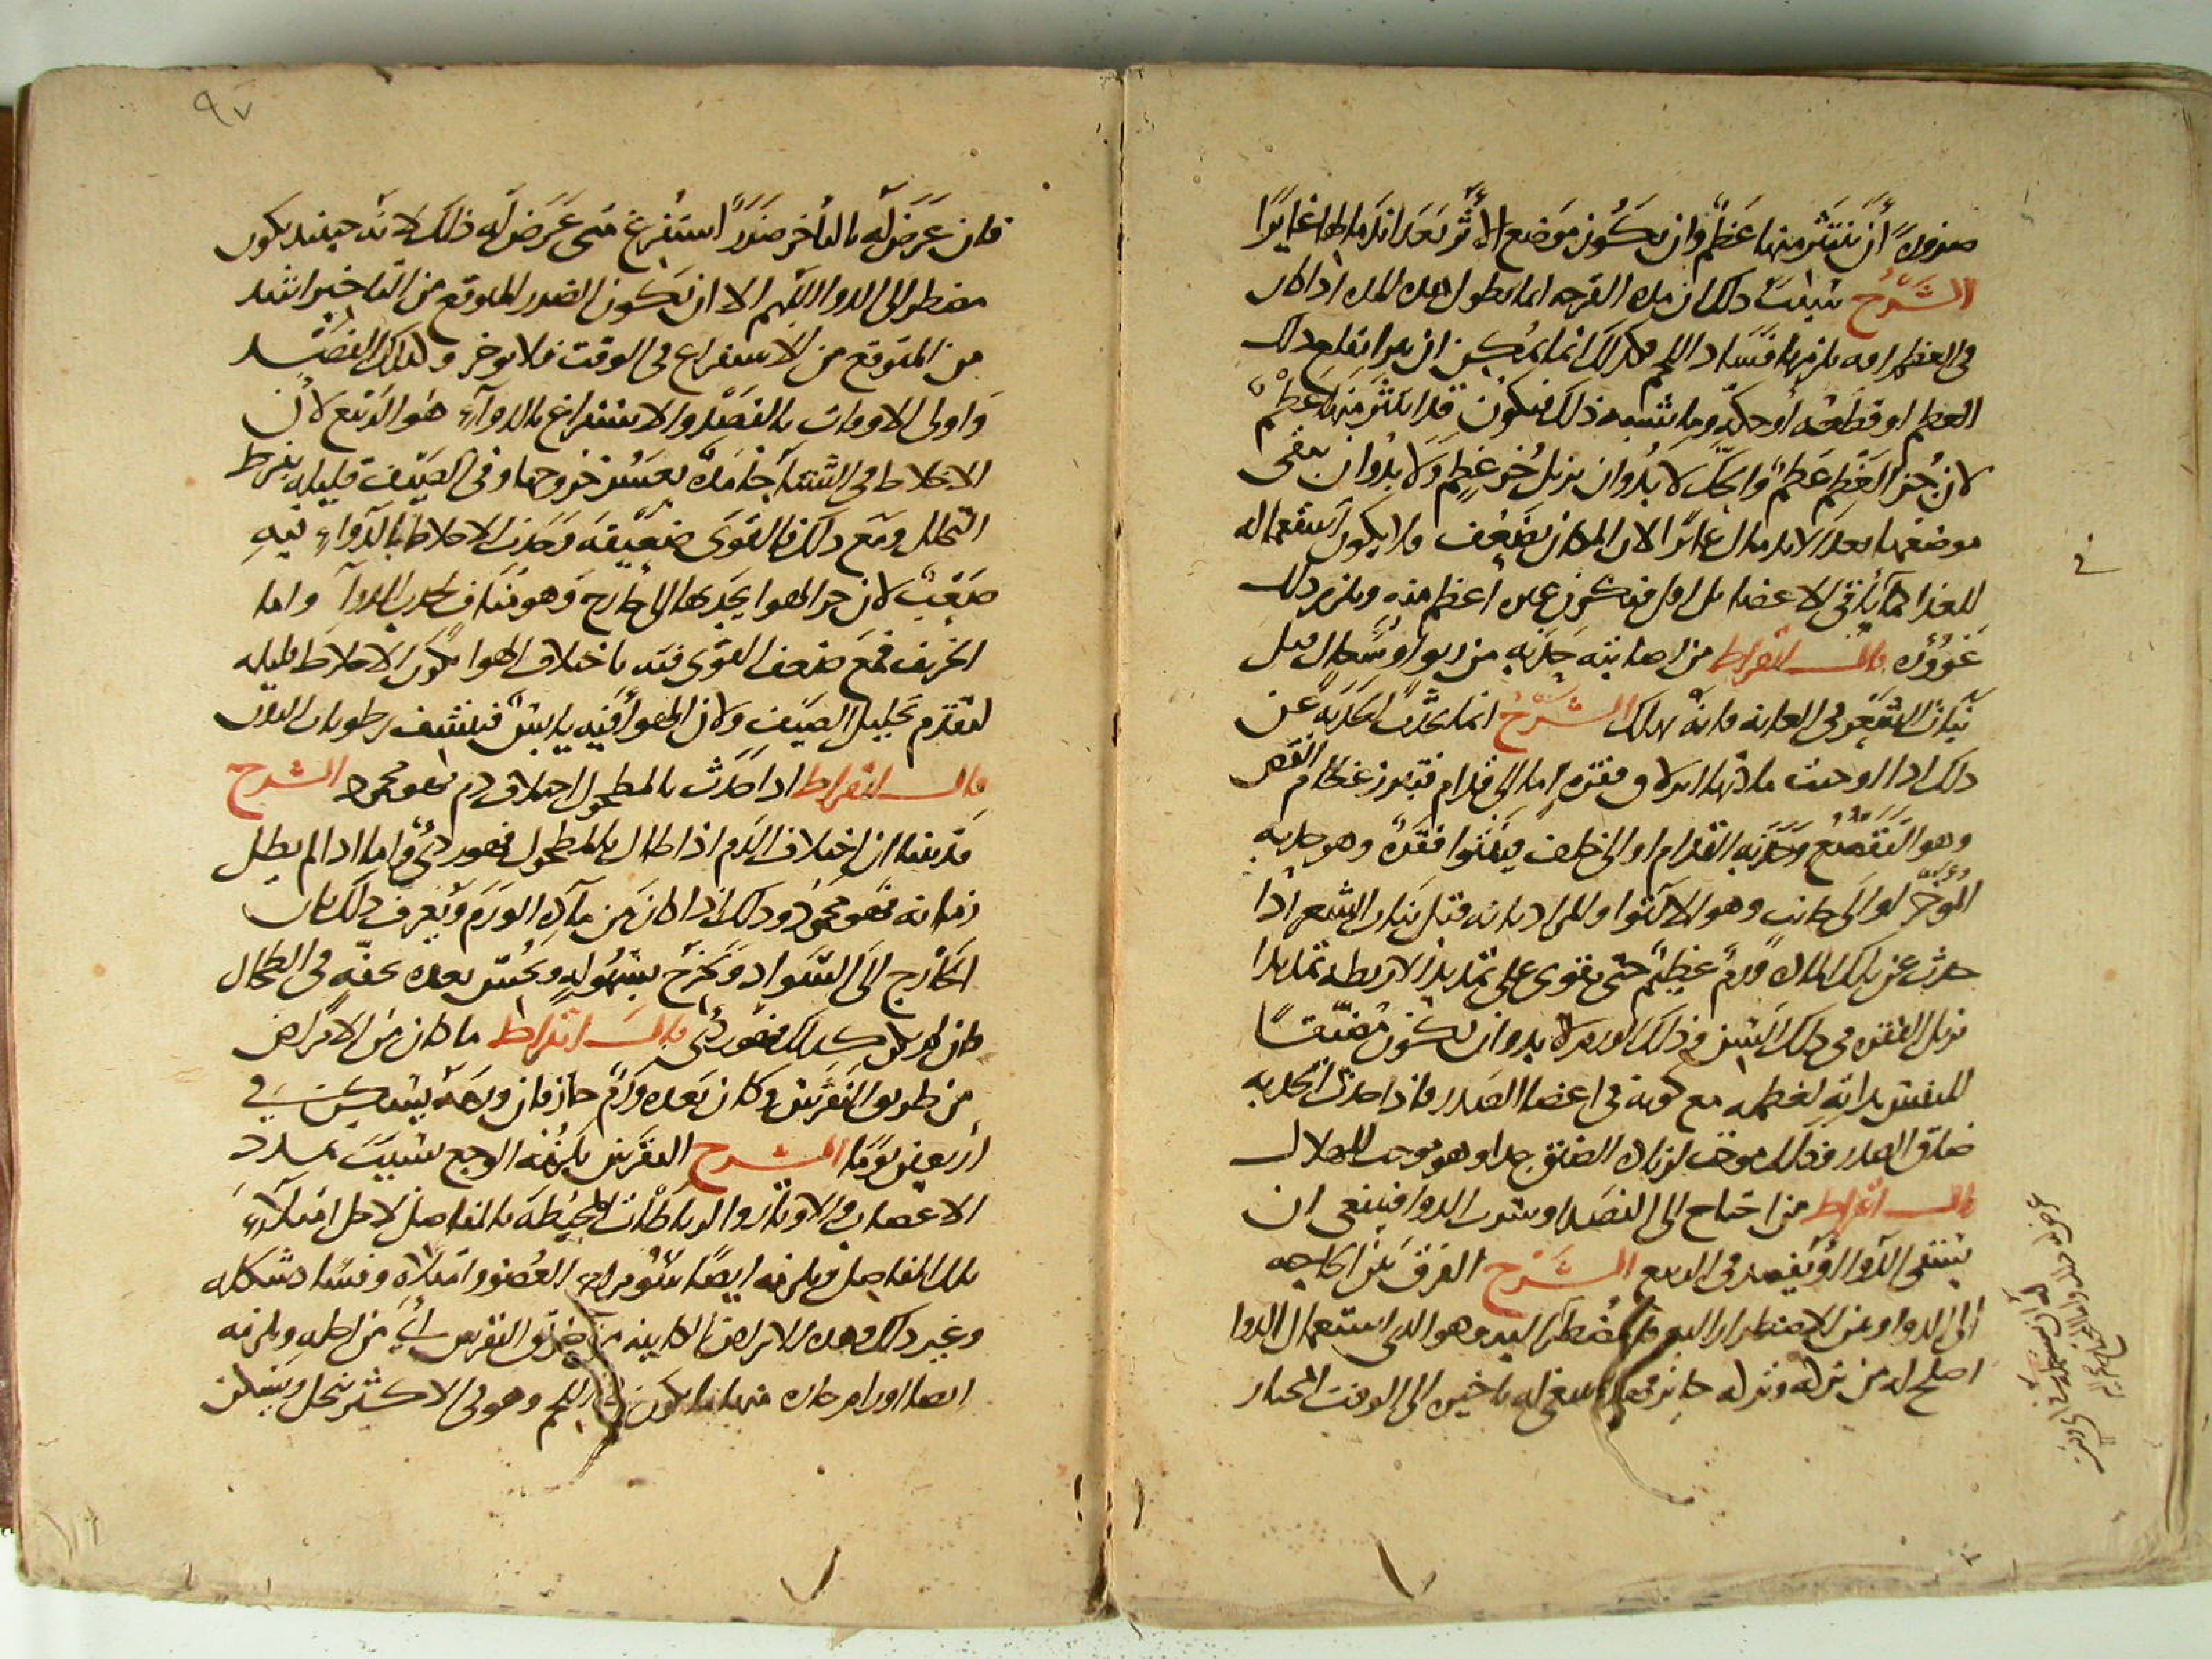 ضرورة أن ينتثر منها عظم وان يكون موضع الأثر بعد اندمالها غايرا
الشرح سبب ذلك ان هذه القرحه انما تطول هذه المده اذا كان
في العظم افه يلزمها فساد اللحم فلذلك انما يمكن ان تبرا بقلع ذلك
العظم او قطعه أو حكه وما يشبه ذلك فيكون قد انتثر منها عظم
لان جزء العظم عظم والحك لا بد وان يزيل جزء عظم ولا بد وان يبقى
موضعها بعد الاندمال غايرا لان المكان يضعف فلا يكون استعماله
للغذا كما في باقي الاعضا بل اقل فتكون عنده اعظم منه ويلزم ذلك
غووره قال ابقراط من اصابته حدبه من ربو او سعال قبل
نبات الشعر في العانه فانه يهلك الشرح انما تحدث الحدبه عن
ذلك اذا اوجبت مادتهما انزلاق فقره اما الى قدام فتبرز عظام القص
وهو التقصع وحدبه القدام او الى خلف فتنتوا فقره وهو حدبه
المؤخر او الى جانب وهو الالتوا وللمراد بانه قبل نبات الشعر اذا
حدث عن تلك الماده ورم عظيم حتى يقوى على تمديد الاربطه تمديدا
يزيل الفقره في ذلك السن فذلك الورم لا بد وان يكون مضيقا
للنفس بذاته لعظمه مع كونه في اعضا الصدر فاذا حدثت الحدبه
ضاق الصدر فذلك موجب لزياده الضيق جدا وهو موجب للهلاك
قال ابقراط من احتاج الى الفصد او شرب الدوا فينبغى ان
يسقى الدوا او يفصد في الربيع الشرح الفرق بين الحاجه
الى الدوا وبين الاضطرار اليه ان المضطر اليه وهو الذى استعمال الدوا
اصلح له من تركه وتركه جايز فهذا ينبغى له تاخيره الى الوقت المختار
٩٧
فان عرض له بالتأخر ضررا استفرغ متى عرض له ذلك لانه حينئذ يكون
مضطر الى الدوا اللهم الا ان يكون الضرر المتوقع من التاخير اشد
من المتوقع من الاستفراغ في الوقت فلا يوخر وكذلك الفصد
واولى الاوقات بالفصد والاستفراغ بالدواء هو الربيع لأن
الاخلاط في الشتا جامده يعسر خروجها وفي الصيف قليله بفرط
التحلل ومع ذلك فالقوى ضعيفه وجذب الاخلاط بالدواء فيه
صعب لان حر الهوا يجذبها الى خارج وهو مناف لجذب الدوا واما
الخريف فمع ضعف القوى فيه باختلاف الهوا تكون الاخلاط قليله
لتقدم تحليل الصيف ولان الهوا فيه يابس فينشف رطوبات البدن
قال ابقراط اذا حدث بالمطحول اختلاف دم فهو محمود الشرح
قد بينا ان اختلاف الدم اذا طال بالمطحول فهو ردئ واما اذا لم يطل
زمانه فهو محمود وذلك اذا كان من مادة الورم ويعرف ذلك بان
الخارج الى السواد ويخرج بسهوله ويحس بعده بخفه في الطحال
فان لم يكن كذلك فهو ردئ قال ابقراط ما كان من الامراض
من طريق النقرس وكان معه ورم حار فان ورمه يسكن في
اربعين يوما الشرح النقرس يلزمه الوجع بسبب تمدد
الاعصاب والاوتار والرباطات المحيطه بالمفاصل لاجل امتلاء
تلك المفاصل ويلزمه ايضا سوء مزاج العضو وامتلاه وفساد شكله
وغير ذلك وهذه الامراض الكاينه من طريق النقرس أي من اجله ويلزمه
ايضا اورام حاره منها ما يكون في اللحم وهو في الاكثر ينحل ويسكن